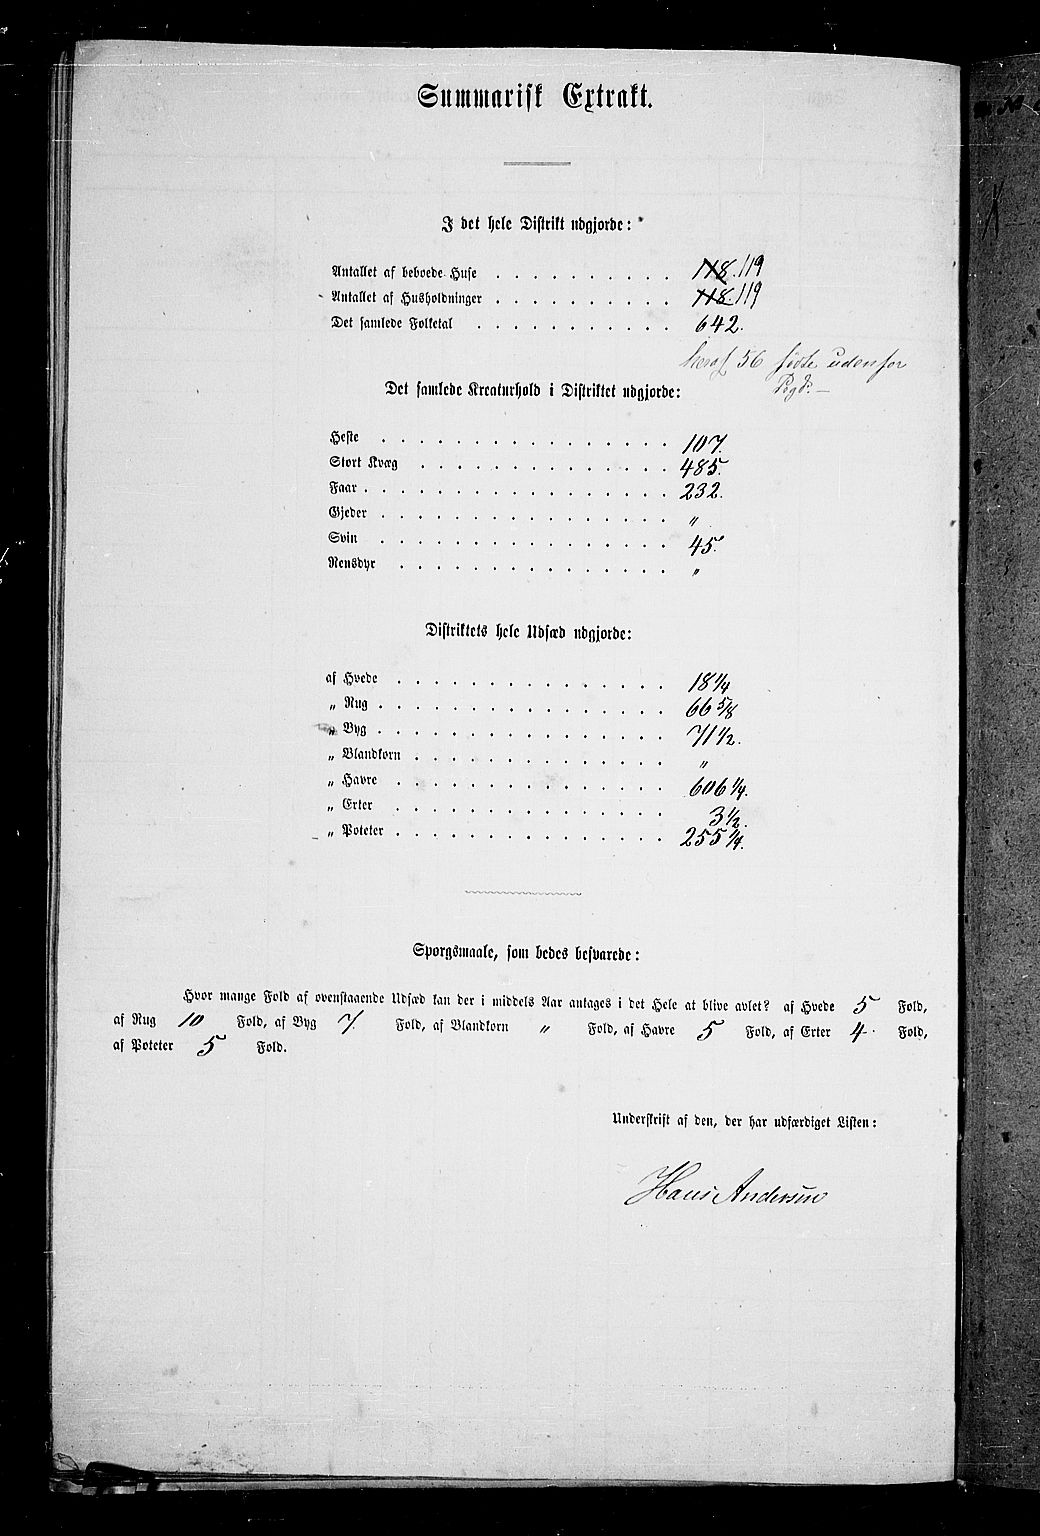 Summarisk Extrakt.
I det hele Distrikt udgjorde:
Antallet af beboede Huse . . . . . . . . . . 118. 119
Antallet af Husholdninger . . . . . . . . . . 118. 119
Det samlede Folketal . . . . . . . . . . . 642.
heraf 56 fødte udenfor
Pgd. —
Det samlede Kreaturhold i Distriktet udgjorde:
Heste . . . . . . . . . . . . . . . . 107.
Stort Kvæg . . . . . . . . . . . . . . 485.
Faar . . . . . . . . . . . . . . . . . 232.
Gjeder . . . . . . . . . . . . . . . . "
Svin . . . . . . . . . . . . . . . . 45.
Rensdyr . . . . . . . . . . . . . . . "
Distriktets hele Udsæd udgjorde:
af Hvede . . . . . . . . . . . . . . . 18 1/4
„ Rug . . . . . . . . . . . . . . . . 66 5/8
„ Byg . . . . . . . . . . . . . . . . 71 1/2.
„ Blandkorn . . . . . . . . . . . . . . "
„ Havre . . . . . . . . . . . . . . . 606 1/4.
„ Erter . . . . . . . . . . . . . . . 3 1/2.
„ Poteter . . . . . . . . . . . . . . . 255 1/4.
Spørgsmaale, som bedes besvarede:
Hvor mange Fold af ovenstaaende Udsæd kan der i middels Aar antages i det Hele at blive avlet? af Hvede 5 Fold,
af Rug 10 Fold, af Byg 7. Fold, af Blandkorn " Fold, af Havre 5 Fold, af Erter 4. Fold,
af Poteter 5 Fold.
Underskrift af den, der har udfærdiget Listen:
Hans Andersen